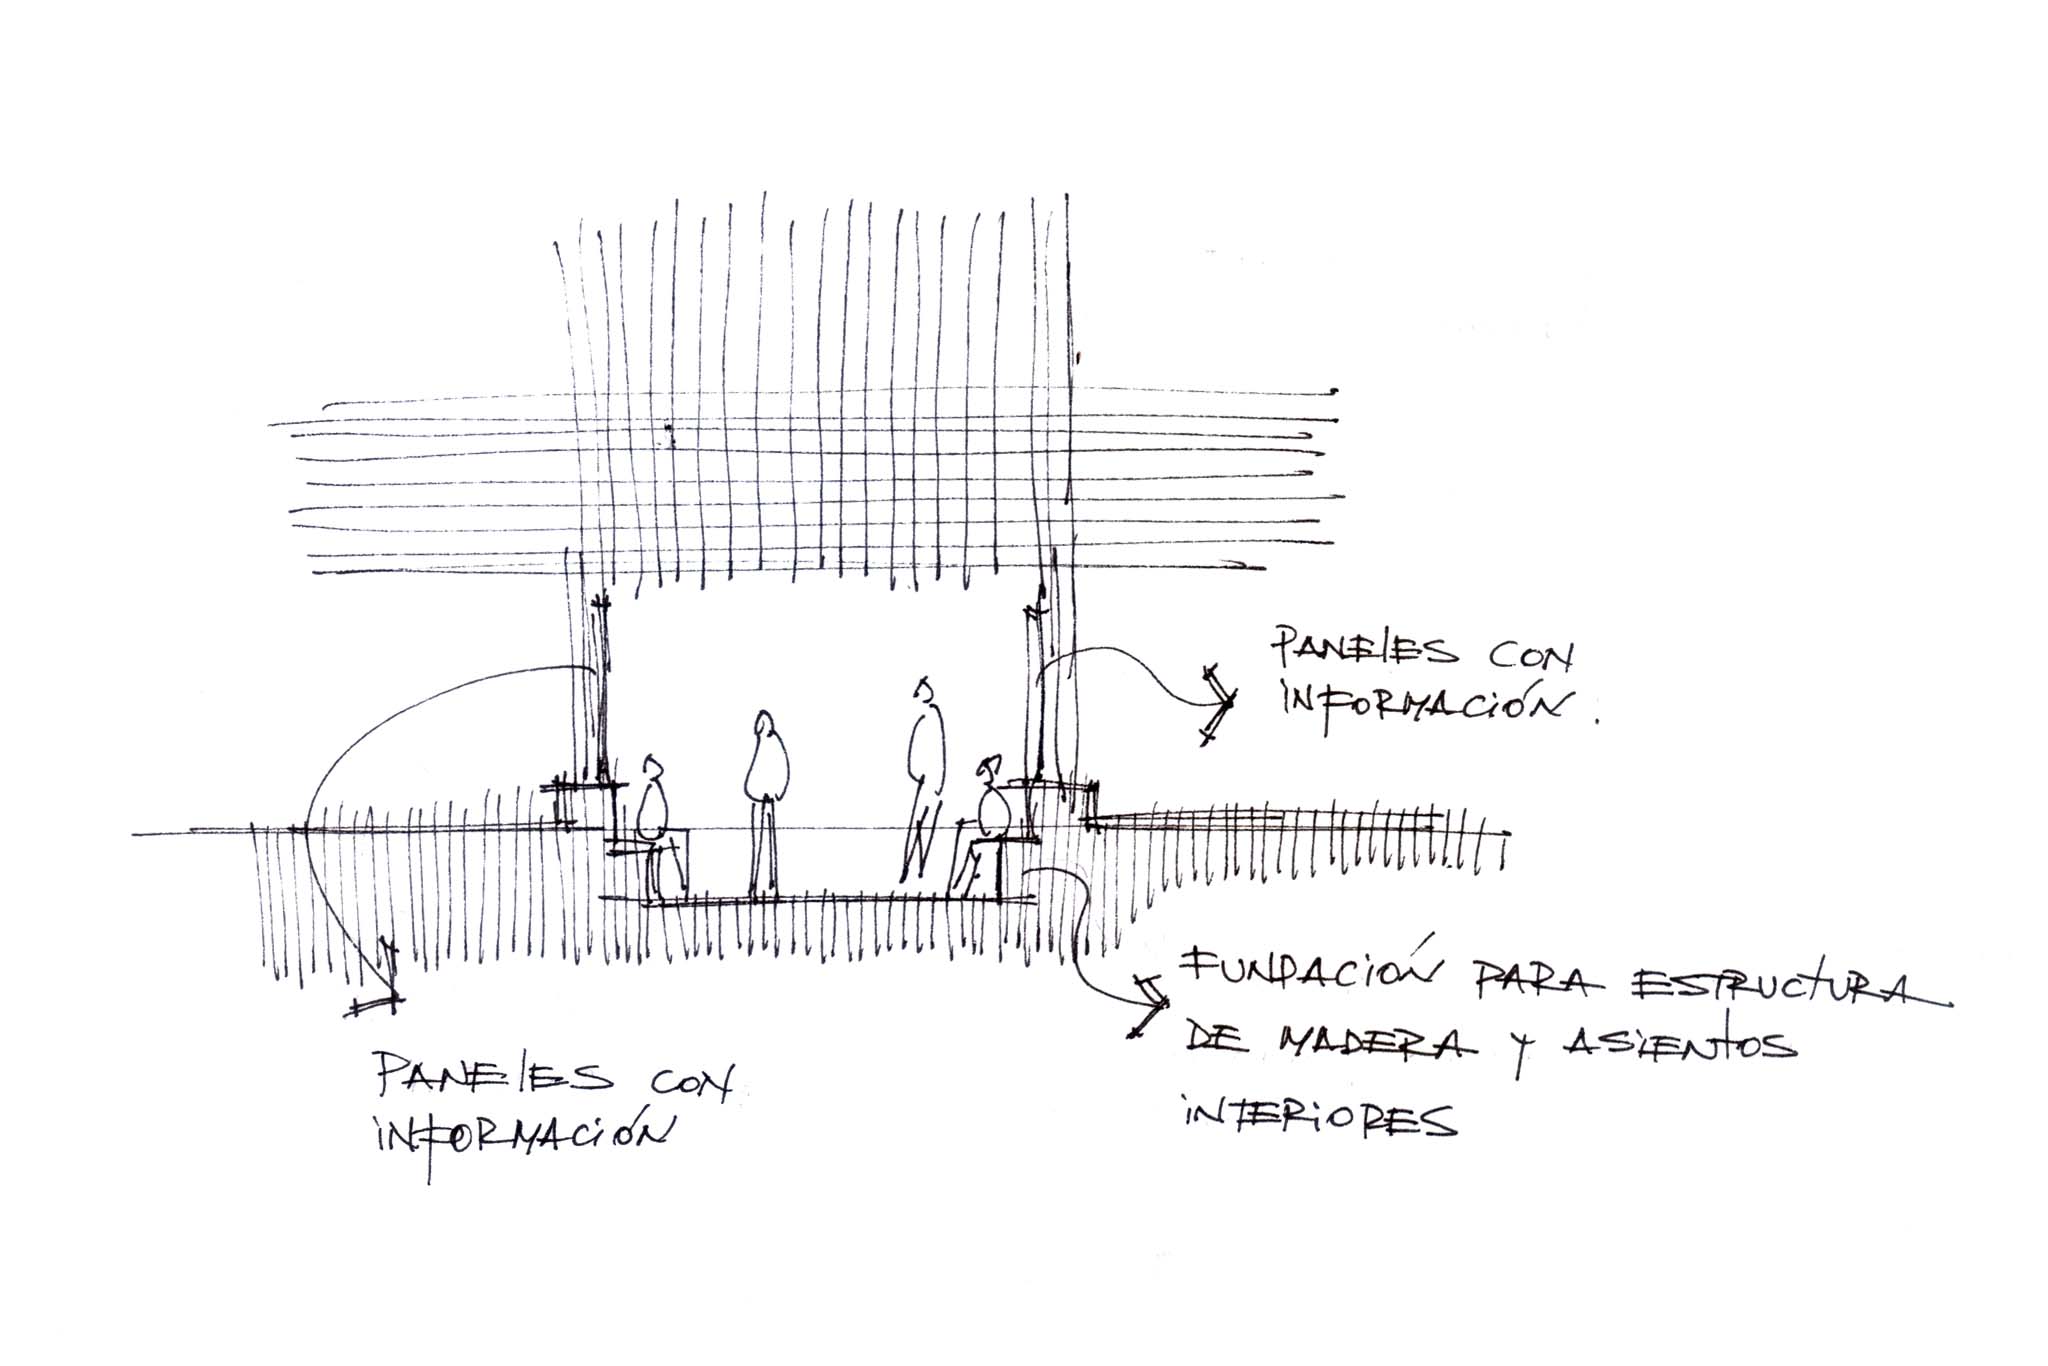 PANELES CON
INFORMACIÓN.
FUNDACIÓN PARA ESTRUCTURA
DE MADERA Y ASIENTOS
INTERIORES
PANELES CON
INFORMACIÓN